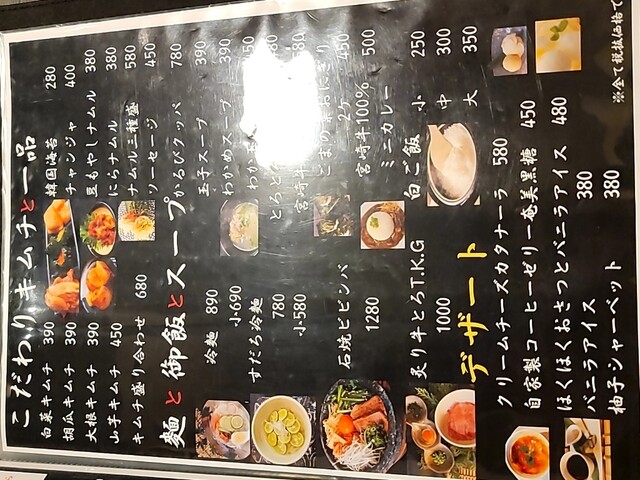 こだわりキムチと一品
白菜キムチ 390
胡瓜キムチ 390
大根キムチ 390
山芋キムチ 450
キムチ盛り合わせ 680
韓国海苔 280
チャンジャ 400
豆もやしナムル 380
にらナムル 380
ナムル三種盛 580
ソーセージ 450
麺と御飯とスープ
冷麺 890
小690
すだち冷麺
780
小580
石焼ビビンバ
1280
炙り牛とろT.K.G
1000
かるびクッパ 780
玉子スープ 390
わかめスープ 390
わか
450
とろ
宮崎牛
おにぎり
2ケ 450
宮崎牛100%
ミニカレー 500
白ご飯 小 250
中 300
大 350
デザート
クリームチーズカタナーラ 580
自家製コーヒーゼリー奄美黒糖 450
ほくほくおさつとバニラアイス 480
バニラアイス 380
柚子シャーベット 380
※全て税抜価格で